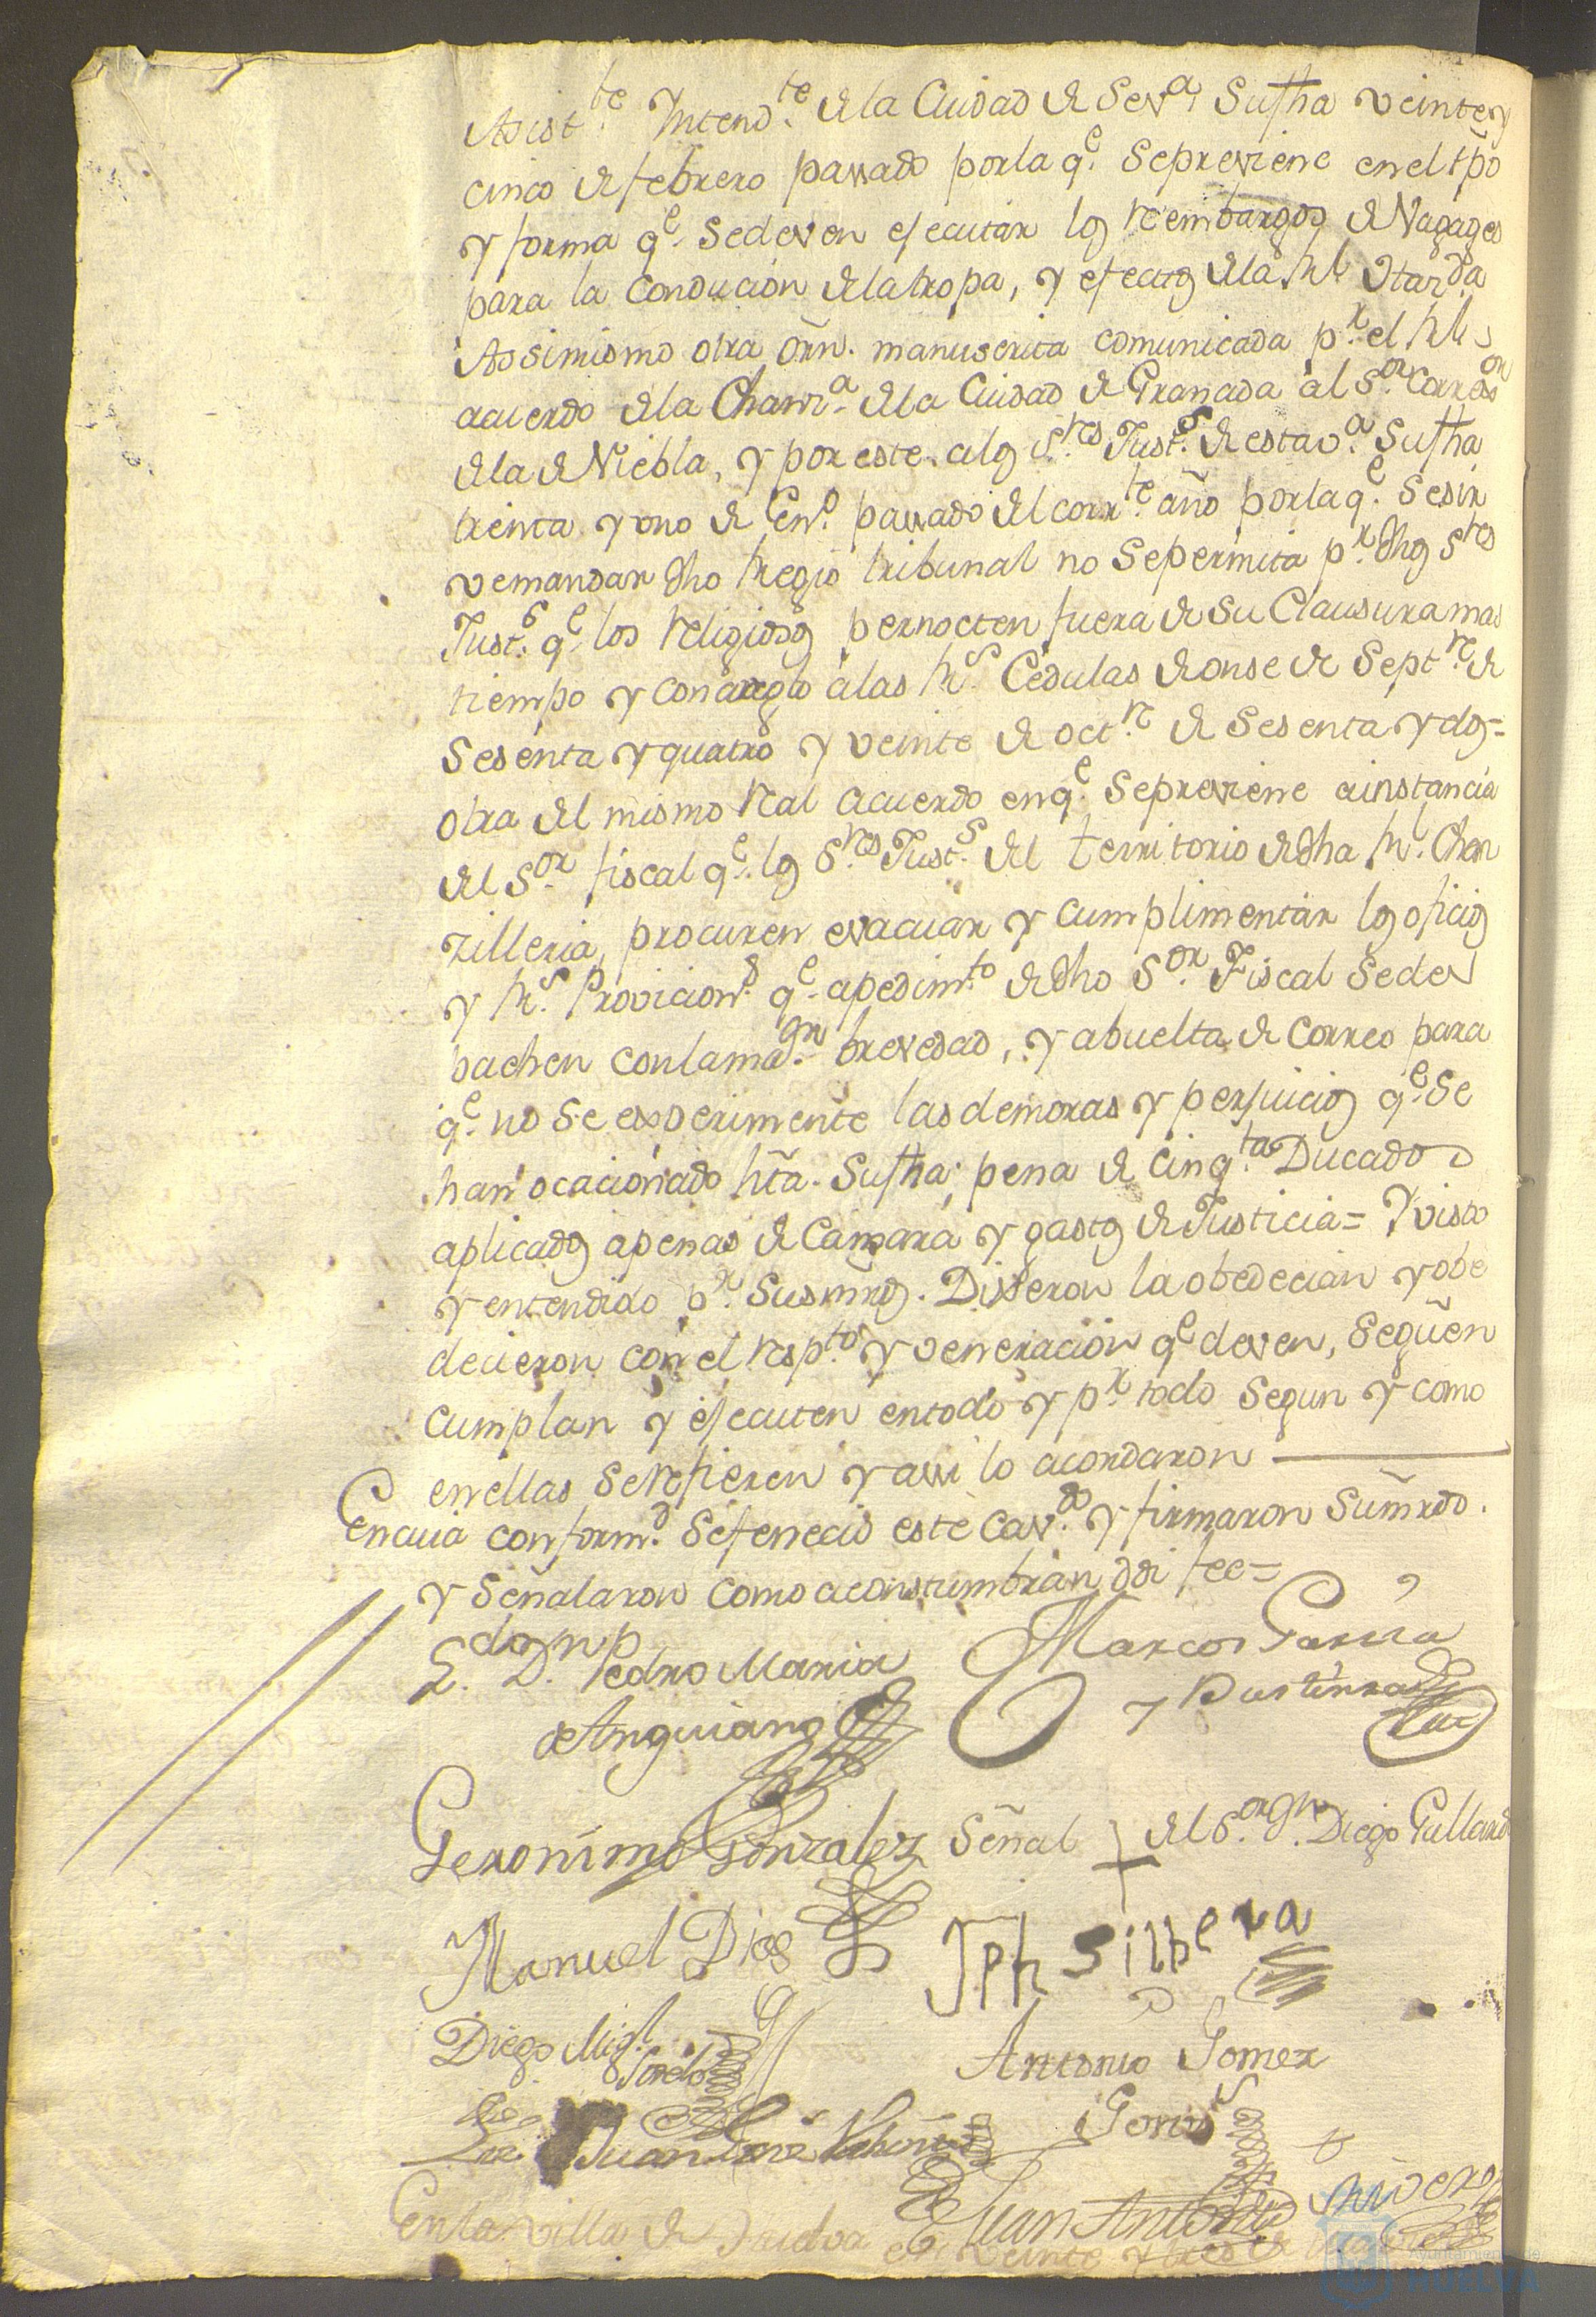 Asist.te Yntend.te de la Ciudad de Seva. Su fha veinte y
cinco de febrero passado por la q.e se previene en el tpo
y forma q.e se deven ejecutar los reembargos de Vagages
para la conducion de la tropa, y efectos de la Rl
Assimismo otra orn. manuscrita comunicada p.r el Rl
acuerdo de la Chanz.a de la Ciudad de Granada al S.or Corre.or
de la de Niebla, y por este a los S.res Just.s de esta v.a Su fha
treinta y uno de En.o passado del corr.te año por la q.e se sir
ve mandar dho Regio tribunal no se permita p.r dhos S.res
Just.s q.e los Religiosos pernocten fuera de su Clausura mas
tiempo y con arreglo a las R.s Cedulas de onse de Sept.re de
sesenta y quatro y veinte de oct.re de sesenta y dos=
otra del mismo Real acuerdo en q.e se previene a instancia
del S.or fiscal q.e los S.res Just.s del territorio de dha R.l Chan
zilleria, procuren evacuar y cumplimentar los oficios
y R.s Provicion.s q.e a pedim.to de dho S.or Fiscal se des
pachen con la ma.or brevedad, y a buelta de correo para
q.e no se experimente las demoras y perjuicios q.e se
han ocacionado hta. su fha; pena de cinq.ta Ducados
aplicados a penas de Camara y gastos de Justicia= Y visto
y entendido p.r sus mrds. Dixeron la obedecian y obe
decieron con el resp.to y veneracion q.e deven, se guen
cumplan y ejecuten en todo y p.r todo segun y como
en ellas se refieren y assi lo acordaron
En cuia conform.d se fenecio este cav.do y firmaron su mrds.
y señalaron como aconstumbran doi fee=
L.do D.n Pedro Maria
de Anguiano
Marcos Garcia
y Bustinza
Geronimo Gonzalez
Señal + del S.or D.n Diego Gallardo
Manuel Dias
Jph Silbera
Diego Mig.l
Antonio Gomez
Juan
Juan Antonio
Rivero
En la villa de Huelva en veinte y tres de
Ayuntamiento de
HUELVA